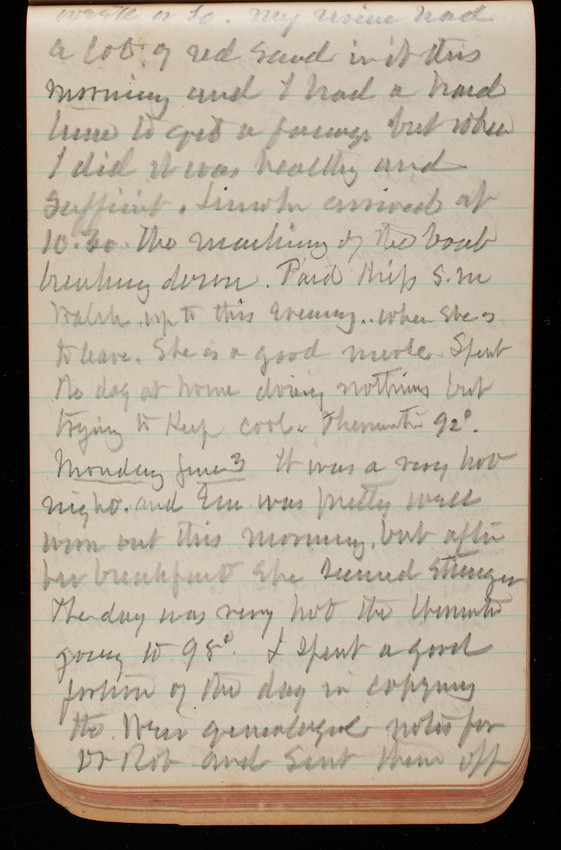 week or so. My urine had
a lot of red sand in it this
morning and I had a hard
time to get a passage but when
I did it was healthy and
sufficient. Lincoln arrived at
10.30 the machinery of the boat
breaking down. Paid Miss S.M
Walsh up to this evening. when she is
to leave. She is a good nurse. Spent
the day at home doing nothing but
trying to keep cool. Thermometer 92°.
Monday June 3 It was a very hot
night. and Em was pretty well
worn out this morning, but after
her breakfast she seemed stronger
The day was very hot the thermometer
going to 98°. I spent a good
portion of the day in copying
the Weir genealogical notes for
Dr Rob and sent them off